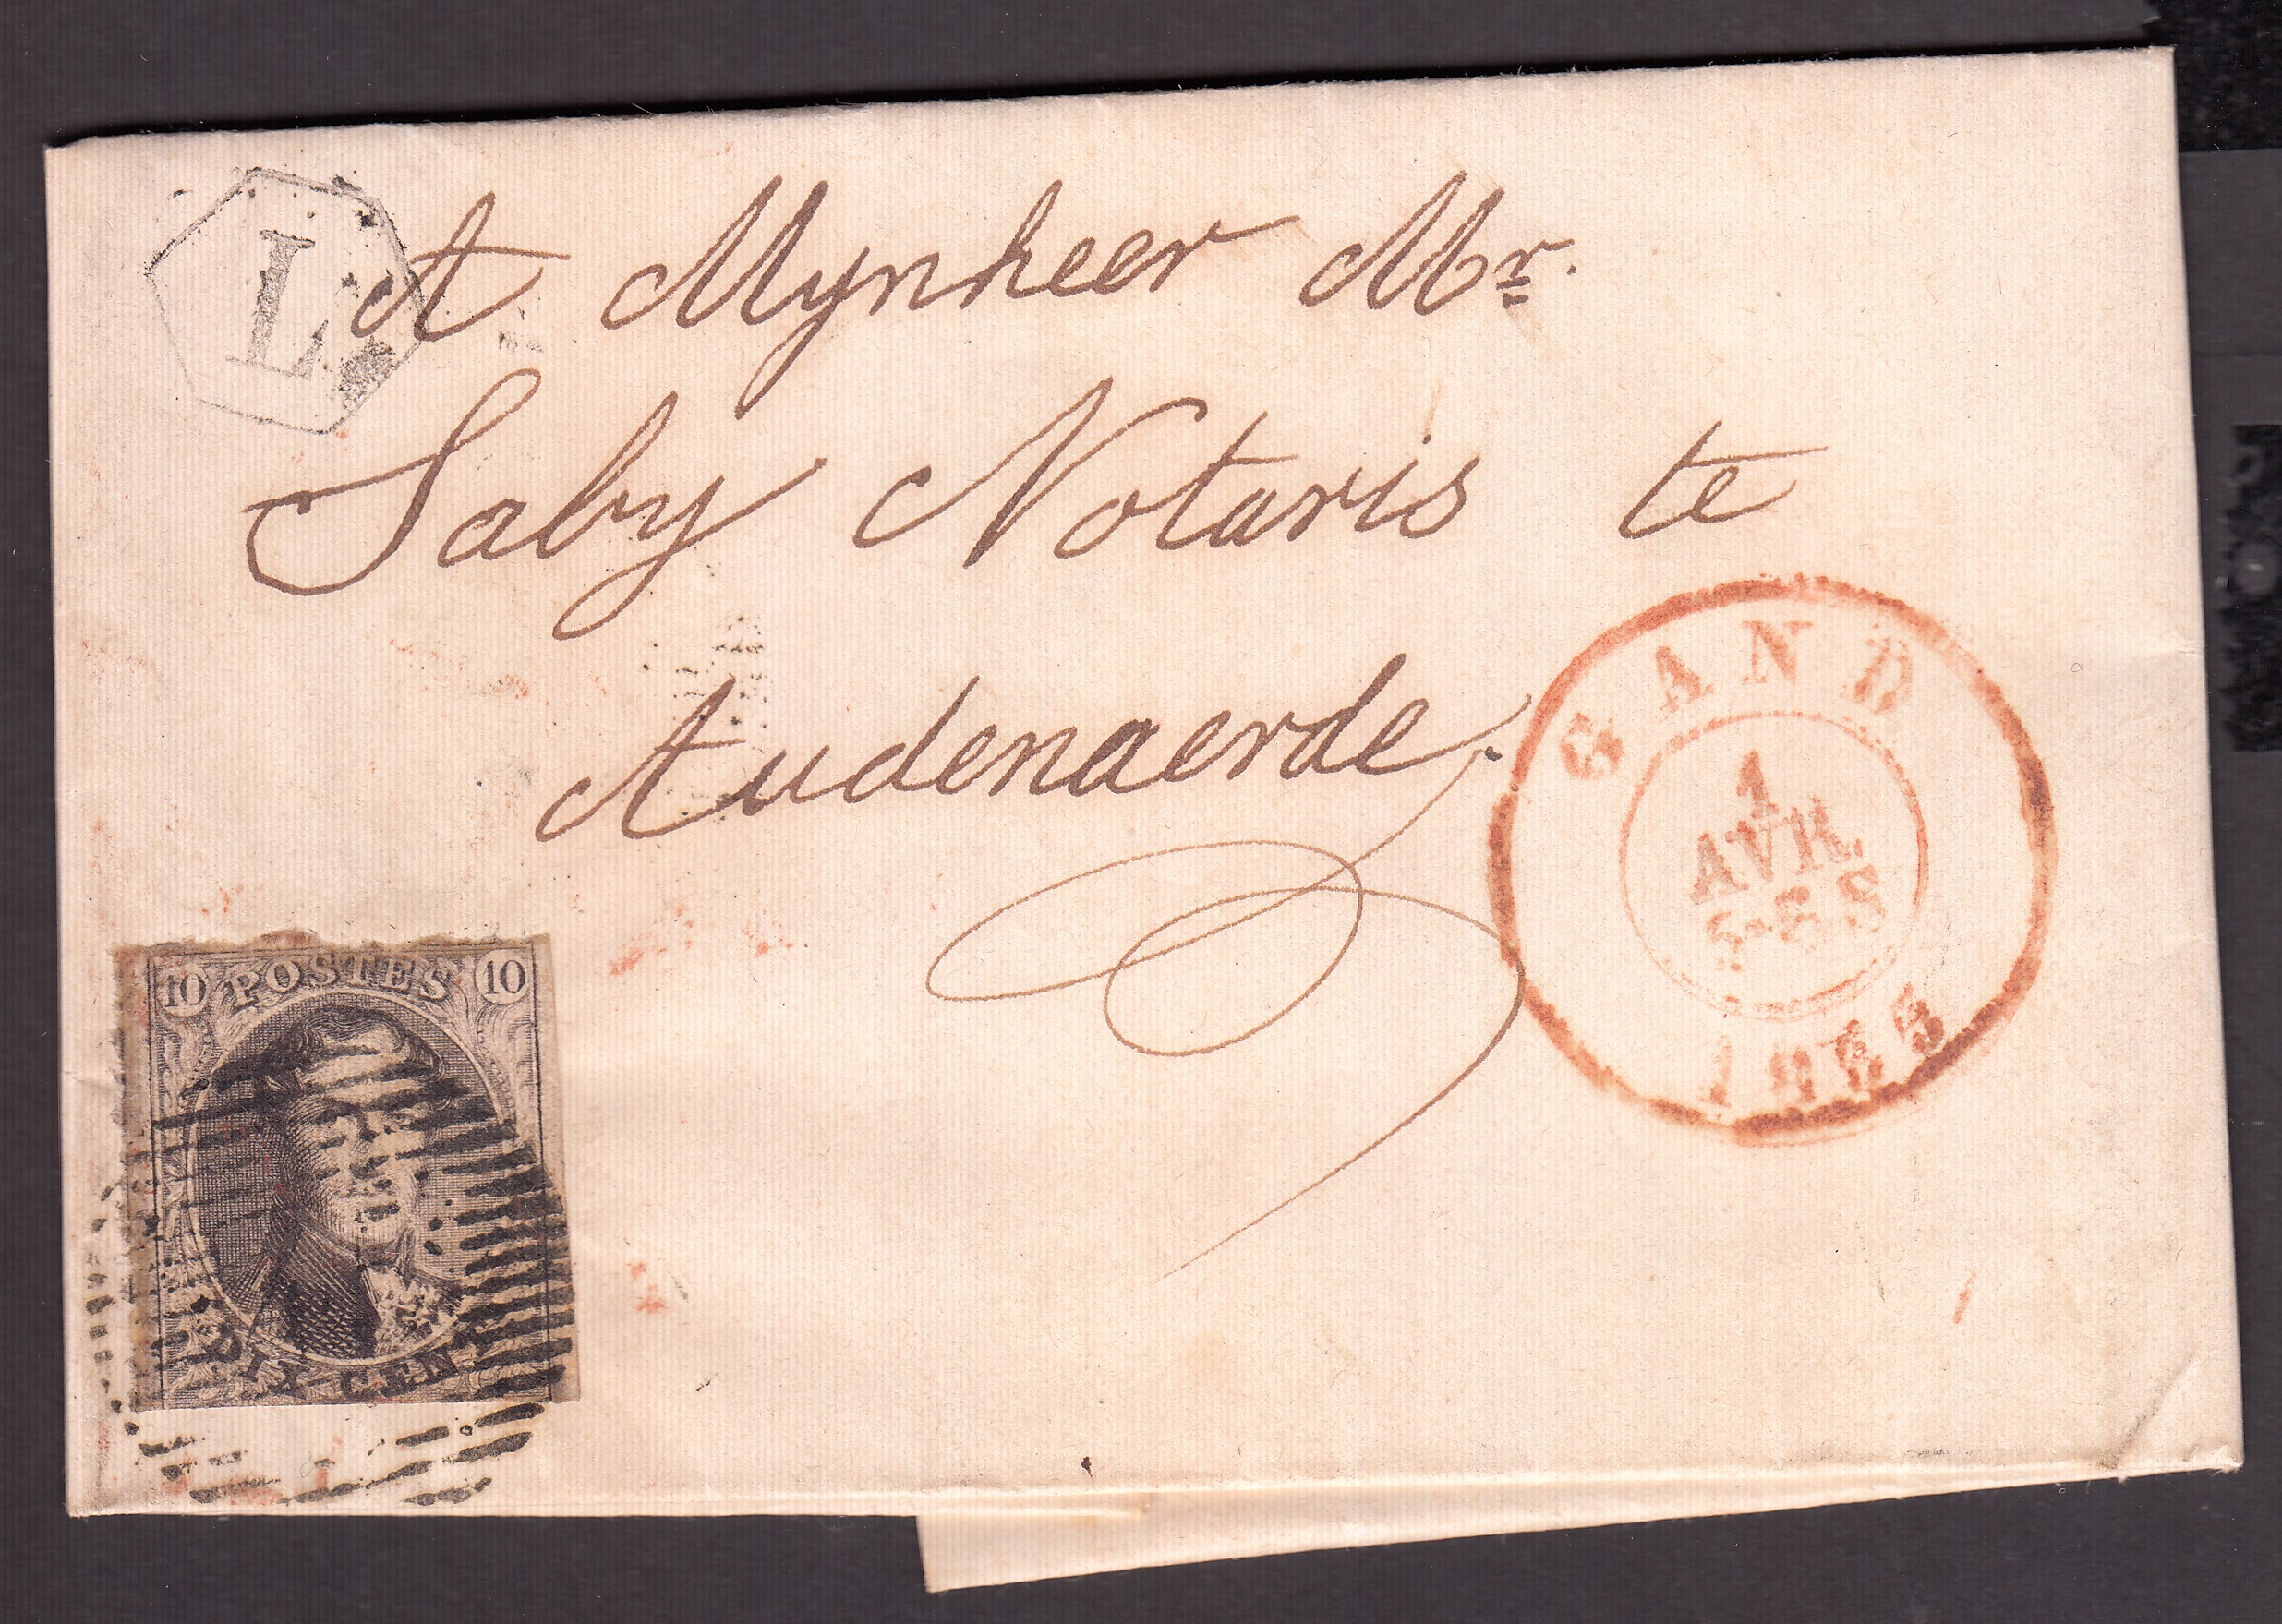 L
A Mynheer Mr.
Saby Notaris te
Audenaerde.
GAND
1
AVR.
10 POSTES 10
DIX CENT